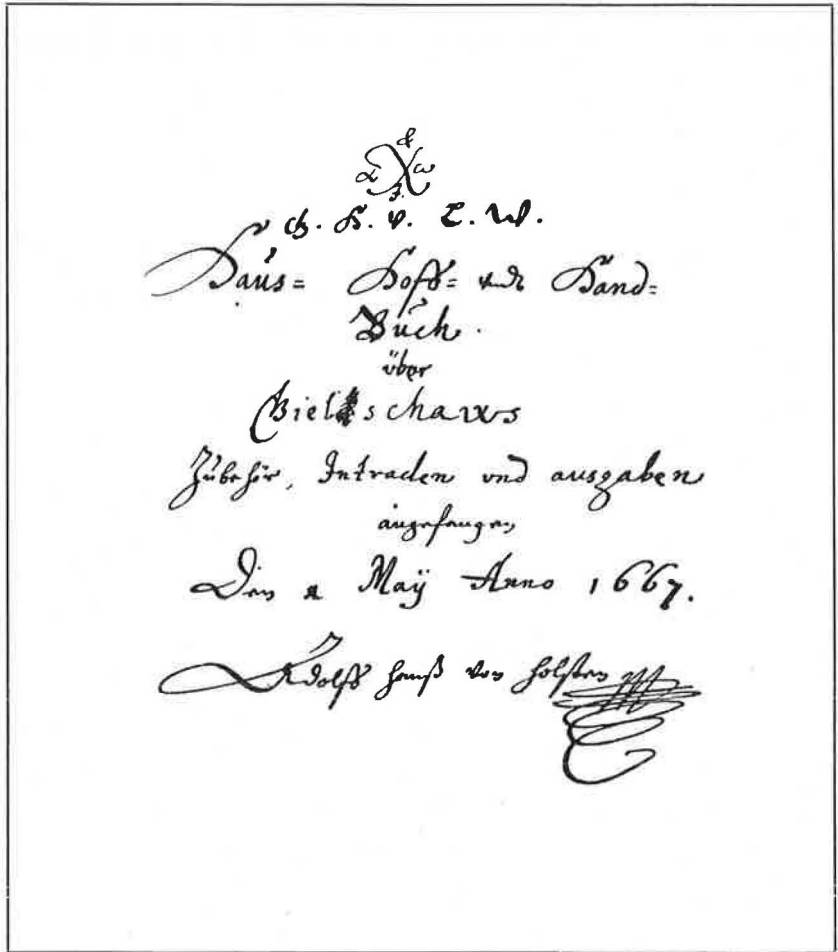 G. H. V. L. W.
Haus= Hoff= undt Hand=
Buch.
über
Gielschaws
Zubehör, Intraden und ausgaben
angefangen
Den May Anno 1667.
Adolff Hanß von Holsten